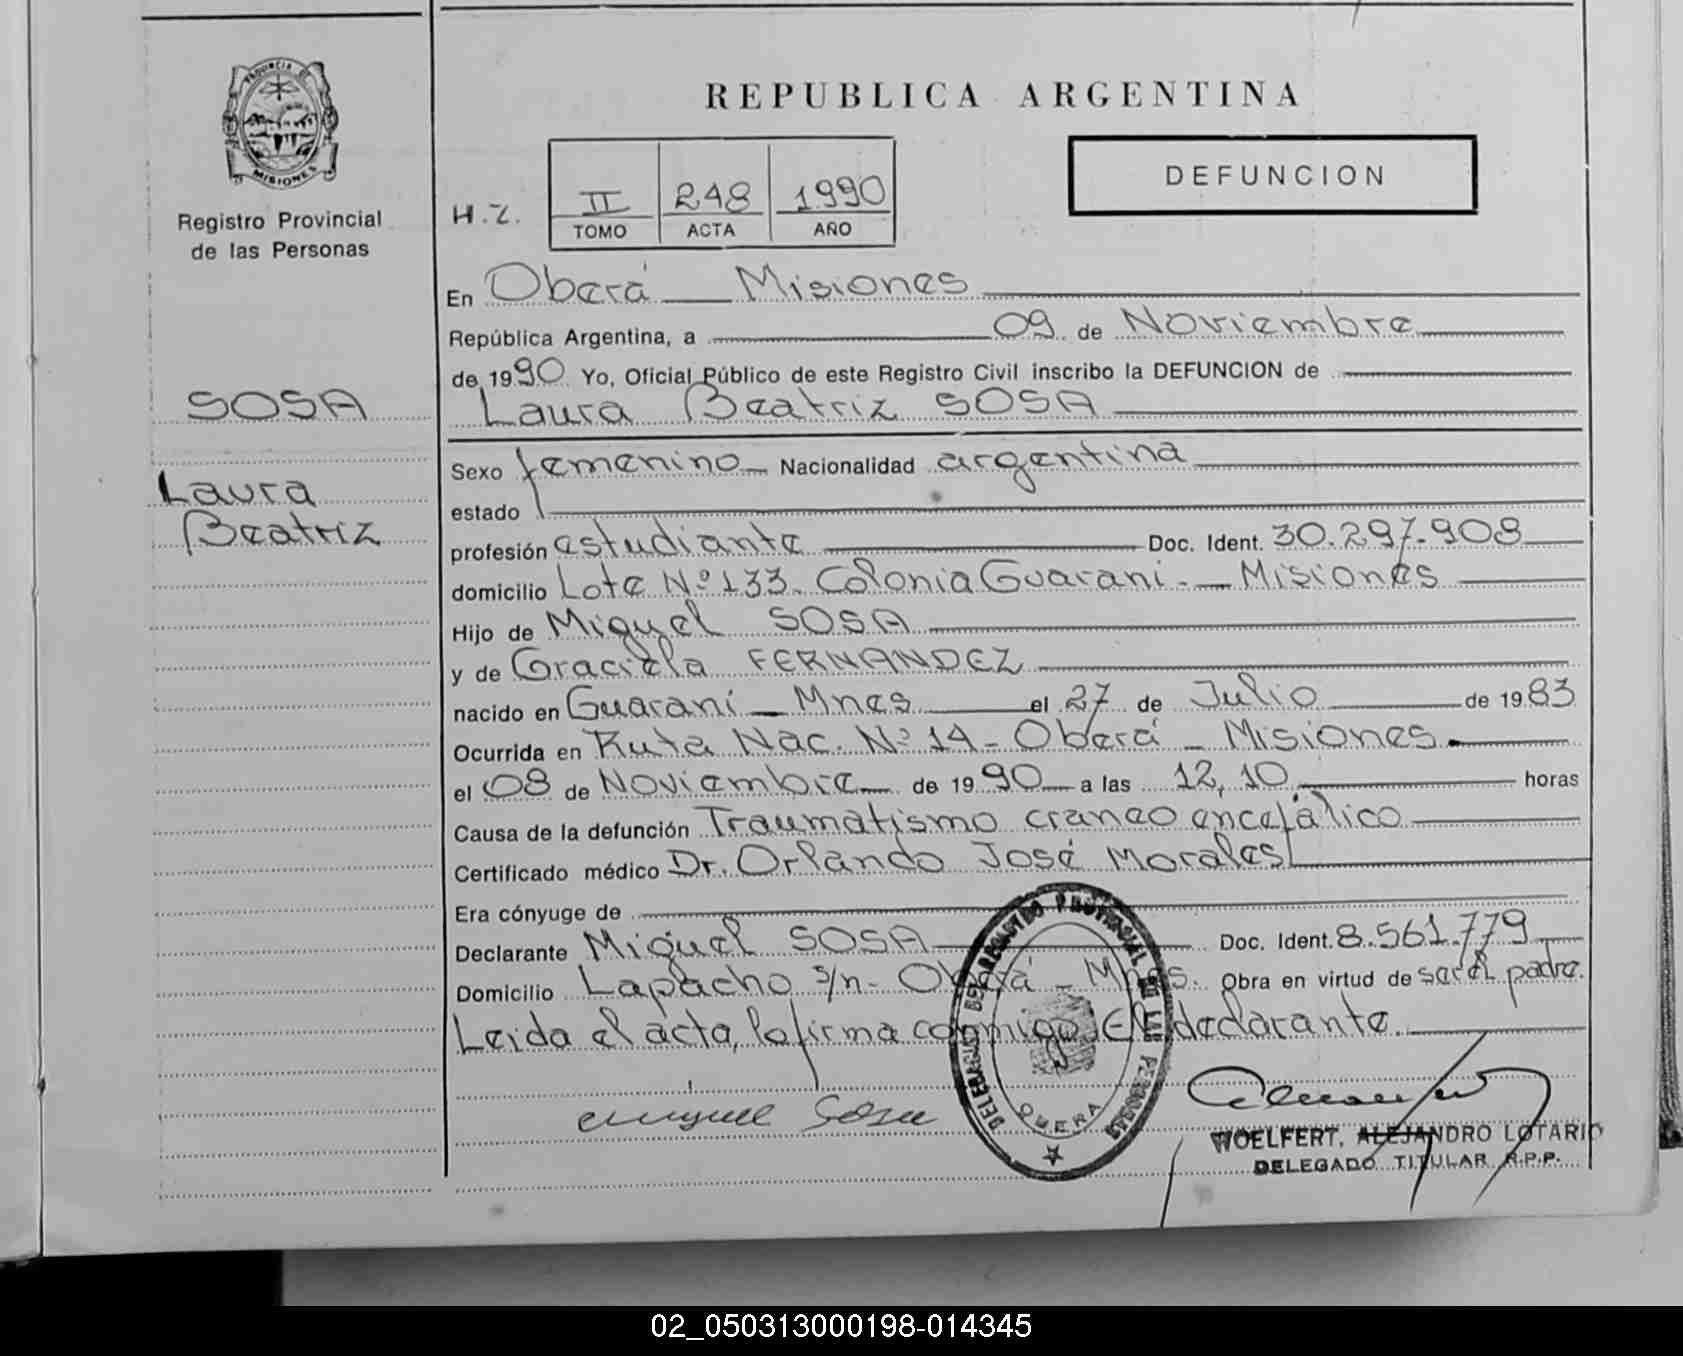 REPUBLICA ARGENTINA
PROVINCIA DE
MISIONES
Registro Provincial
de las Personas
H.Z.
II 248 1990
TOMO ACTA AÑO
DEFUNCION
SOSA
Laura
Beatriz
En Oberá Misiones
República Argentina, a 09 de Noviembre
de 1990 Yo, Oficial Público de este Registro Civil inscribo la DEFUNCION de
Laura Beatriz SOSA
Sexo femenino Nacionalidad argentina
estado
profesión estudiante Doc. Ident. 30.297.908
domicilio Lote Nº 133. Colonia Guarani - Misiones
Hijo de Miguel SOSA
y de Graciela FERNANDEZ
nacido en Guaraní - Mnes el 27 de Julio de 1983
Ocurrida en Ruta Nac. Nº 14 - Oberá - Misiones
el 08 de Noviembre de 1990 a las 12,10 horas
Causa de la defunción Traumatismo craneo encefálico
Certificado médico Dr. Orlando José Morales
Era cónyuge de
Declarante Miguel SOSA Doc. Ident. 8.561.779
Domicilio Lapacho s/n - Oberá - Mnes. Obra en virtud de ser el padre.
Leida el acta, la firma conmigo El declarante
DELEGACION DEL REGISTRO PROVINCIAL DE LAS PERSONAS
OBERA
Miguel Sosa
WOELFERT, ALEJANDRO LOTARIO
DELEGADO TITULAR R.P.P.
02_050313000198-014345